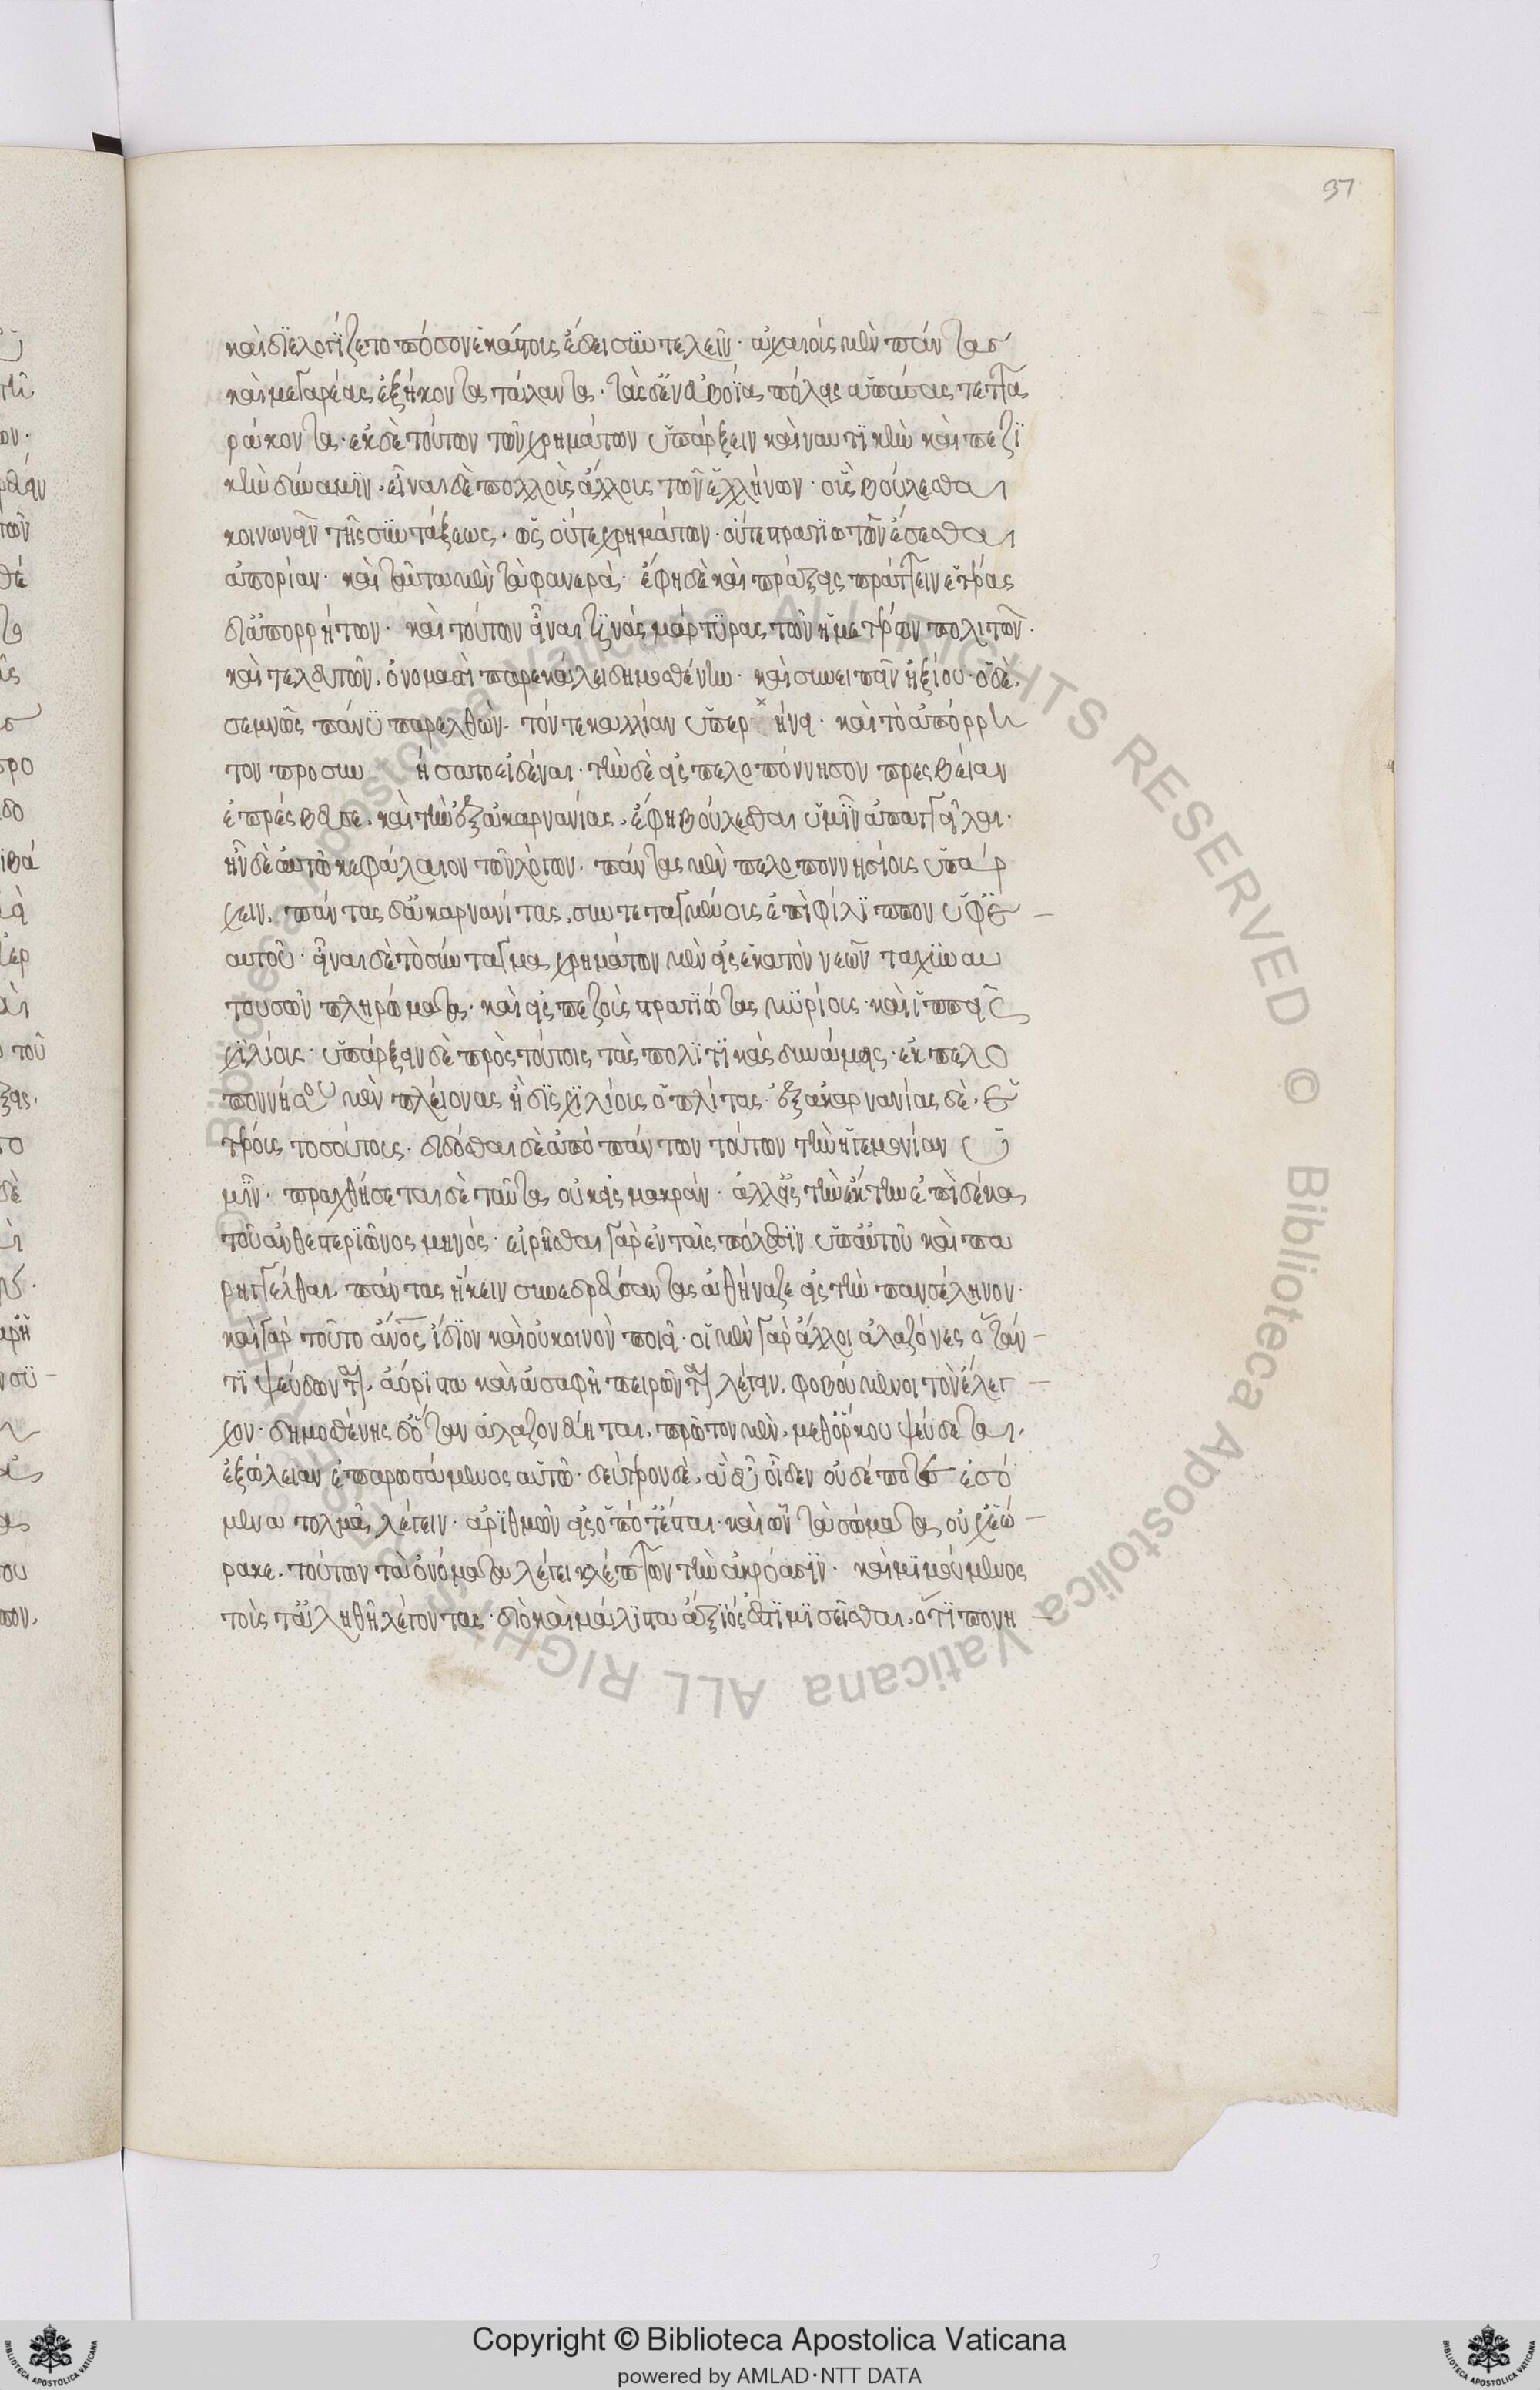 37
καὶ διελογίζετο πόσον ἑκάστοις ἔδει συντελεῖν· ἀχαιοῖς μὲν πάντας
καὶ μεγαρέας ἑξήκοντα τάλαντα· τὰς δ' ἐν εὐβοίας πόλεις ἁπάσαις τετταράκοντα
ράκοντα· ἐκ δὲ τούτων τῶν χρημάτων ὑπάρξειν καὶ ναυτικὴν καὶ πεζι
κὴν δύναμιν· εἶναι δὲ πολλοῖς ἄλλοις τῶν ἑλλήνων· οἷς βούλεσθαι
κοινωνεῖν τῆς συντάξεως· ὡς οὔτε χρημάτων· οὔτε στρατιωτῶν ἔσεσθαι
ἀπορίαν· καὶ ταῦτα μὲν τὰ φανερά· ἔφη δὲ καὶ πράξεις πράττειν ἑτέρας
δι' ἀπορρήτων· καὶ τούτων εἶναί τινας μάρτυρας τῶν ἡμετέρων πολιτῶν·
καὶ τελευτῶν· ὀνομαστὶ παρεκάλει δημοσθένην· καὶ συνειπεῖν ἠξίου· ὁ δὲ
σεμνῶς πάνυ παρελθών· τόν τε καλλίαν ὑπερ ήνει· καὶ τὸ ἀπόρρη
τον προσ ή σατο εἰδέναι· τὴν δὲ εἰς πελοπόννησον πρεσβείαν
ἐπρέσβευσε· καὶ τὴν ἐξ ἀκαρνανίας· ἔφη βούλεσθαι ὑμῖν ἀπαγγεῖλαι·
ἦν δὲ αὐτῷ κεφάλαιον τῶν λόγων· πάντας μὲν πελοποννησίους ὑπάρ
χειν· πάντας δ' ἀκαρνάνιτας· συντεταγμένους ἐπὶ φίλιππον ὑφ' ἑ
αυτοῦ· εἶναι δὲ τὸ σύνταγμα χρημάτων μὲν εἰς ἑκατὸν νεῶν ταχυναυ
τουσῶν πληρώματα· καὶ εἰς πεζοὺς στρατιώτας μυρίους· καὶ ἱππεῖς
χιλίους· ὑπάρξειν δὲ πρὸς τούτοις τὰς πολιτικὰς δυνάμεις· ἐκ πελο
ποννήσου μὲν πλείονας ἢ δισχιλίους ὁπλίτας· ἐξ ἀκαρνανίας δὲ· ἑ
τέρους τοσούτους· δεδόσθαι δὲ ἀπὸ πάντων τούτων τὴν ἡγεμονίαν ὑ
μῖν· πραχθήσεται δὲ ταῦτα οὐκ εἰς μακράν· ἀλλ' εἰς τὴν ἕκτην ἐπὶ δέκα
τοῦ ἀνθεστηριῶνος μηνός· εἰρῆσθαι γὰρ ἐν ταῖς πόλεσιν ὑπ' αὐτοῦ καὶ πα
ρηγγέλθαι· πάντας ἥκειν συνεδρεύσαντας ἀθήναζε εἰς τὴν πανσέληνον·
καὶ γὰρ τοῦτο ἄνος ἴδιον καὶ οὐ κοινὸν ποιεῖ· οἱ μὲν γὰρ ἄλλοι ἀλαζόνες ὅταν
τι ψεύδωνται· ἀόριστα καὶ ἀσαφῆ πειρῶνται λέγειν· φοβούμενοι τὸν ἔλεγ
χον· δημοσθένης δ' ὅταν ἀλαζονεύηται· πρῶτον μὲν· μεθ' ὅρκου ψεύδεται·
ἐξώλειαν ἐπαρωσάμενος αὑτῷ· δεύτερον δὲ· ἃ εὖ οἶδεν οὐδέποτε ἐσό
μενα τολμᾷ λέγειν· ἀριθμῶν εἰς ὁπότ' ἔσται· καὶ ὧν τὰ σώματα οὐχ ἑώ
ρακε· τούτων τὰ ὀνόματα λέγει κλέπτων τὴν ἀκρόασιν· καὶ μιμούμενος
τοὺς τἀληθῆ λέγοντας· διὸ καὶ μάλιστα ἄξιός ἐστι μισεῖσθαι· ὅτι πονη
Copyright © Biblioteca Apostolica Vaticana
powered by AMLAD·NTT DATA